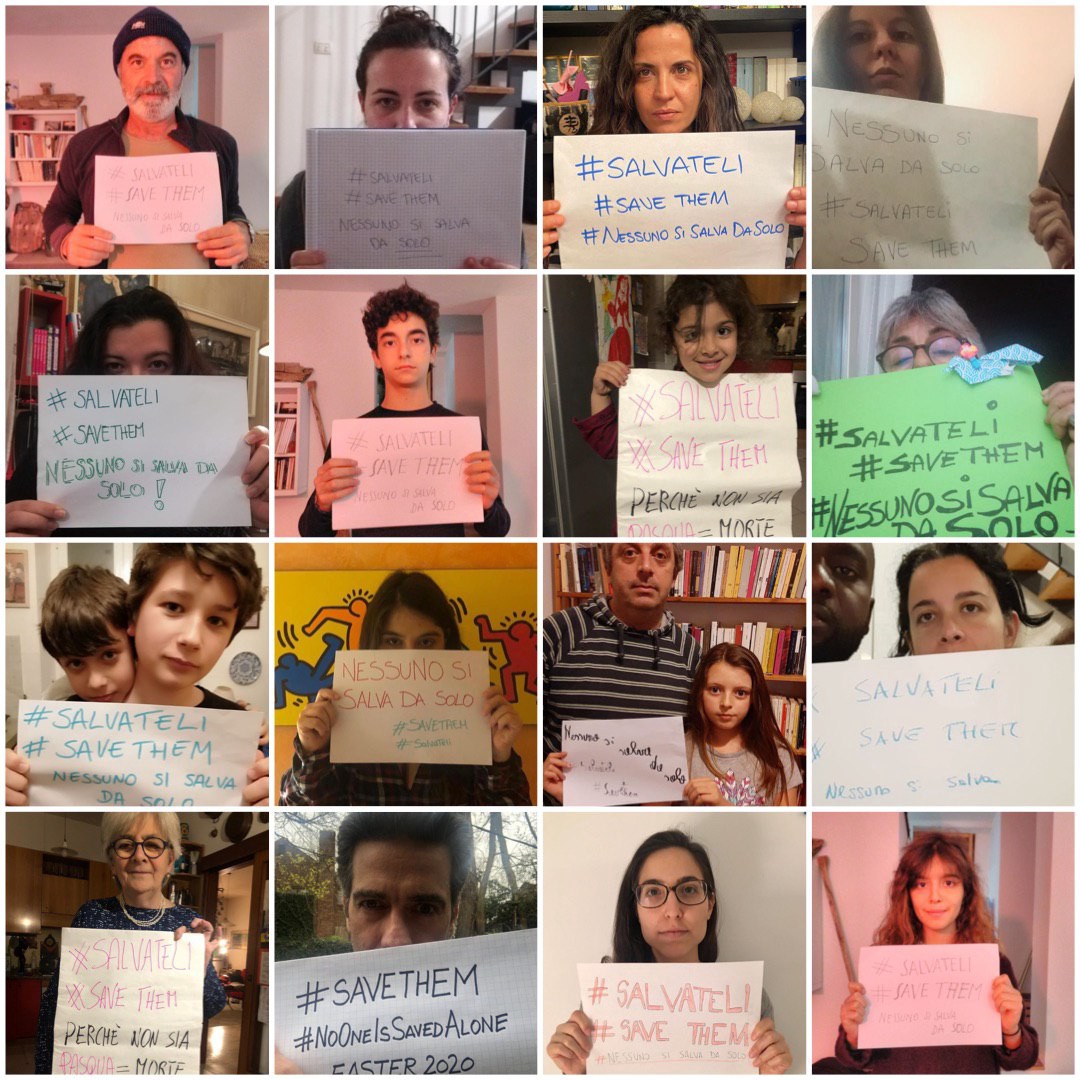 # SALVATELI
# SAVE THEM
NESSUNO SI SALVA
DA SOLO
# SALVATELI
# SAVE THEM
NESSUNO SI SALVA
DA SOLO
#SALVATELI
#SAVE THEM
#NESSUNO SI SALVA DA SOLO
NESSUNO Si
SALVA DA SOLO
#SALVATELi
SAVE THEM
# SALVATELI
#SAVETHEM
NESSUNO Si SALVA DA
SOLO!
# SALVATELI
SAVE THEM
NESSUNO SI SALVA
DA SOLO
#SALVATELI
#SAVE THEM
PERCHÈ NON SIA
PASQUA = MORTE
#SALVATELi
#SAVETHEM
#NESSUNO Si SALVA
DA SOLO
#SALVATELI
# SAVE THEM
NESSUNO SI SALVA
DA SOLO
NESSUNO SI
SALVA DA SOLO
#SAVETHEM
#SALVATELI
Nessuno si
salva
da
solo
SALVATELi
# SAVE THEM
NESSUNO Si salva
#SALVATELI
#SAVE THEM
PERCHÈ NON SIA
PASQUA = MORTE
#SAVETHEM
#NOONEISSAVEDALONE
EASTER 2020
# SALVATELI
# SAVE THEM
#NESSUNO SI SALVA DA SOLO
# SALVATELI
# SAVE THEM
NESSUNO SI SALVA
DA SOLO